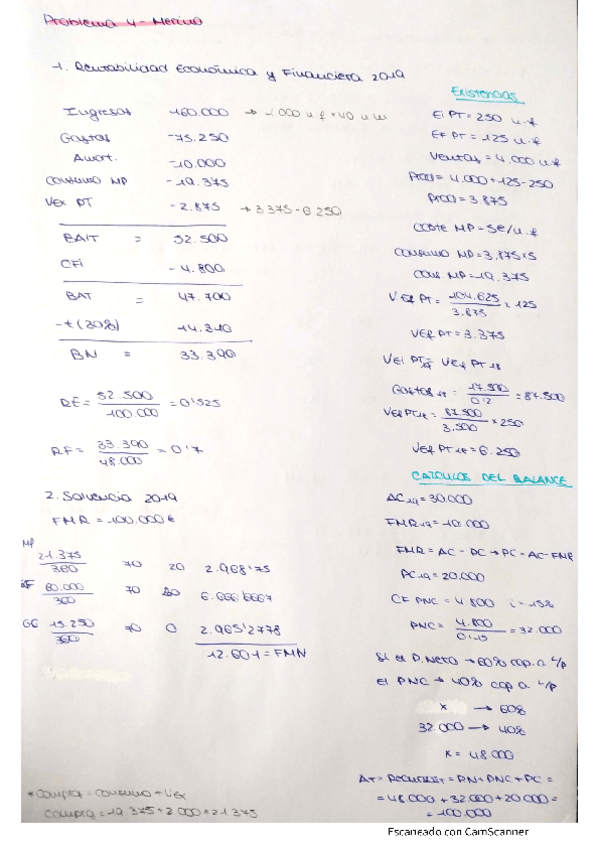 Problema 4 - Merino
1. Rentabilidad Económica y Financiera 2019
Ingresos 160.000 → 4.000 u.f × 40 u.m
Gastos -75.250
Amort. -10.000
Consumo MP -19.375
VEx PT -2.875 → 3.375 - 6.250
BAIT = 52.500
CFi -4.800
BAT = 47.700
-t (30%) 14.310
BN = 33.390
RE = 52.500 / 100.000 = 0'525
RF = 33.390 / 48.000 = 0'7
2. Solvencia 2019
FMR = 100.000€
MP 21.375 / 360 70 20 2.968'75
60.000 / 360 70 30 6.666'6667
GG 15.250 / 360 70 0 2.965'2778
12.601 = FMN
* Compra = consumo + VEx
Compra = 19.375 + 2.000 = 21.375
Existencias
Ei PT = 250 u.f
EF PT = 125 u.f
Ventas = 4.000 u.f
Prod = 4.000 + 125 - 250
Prod = 3.875
Coste MP = 5€/u.f
Consumo MP = 3.875 × 5
Cons MP = 19.375
VEf PT = 104.625 / 3.875 × 125
VEf PT = 3.375
VEi PT19 = VEf PT18
Gastos18 = 17.500 / 0'2 = 87.500
VEf PT18 = 87.500 / 3.500 × 250
VEf PT18 = 6.250
CALCULOS DEL BALANCE
AC19 = 30.000
FMR19 = 10.000
FMR = AC - PC → PC = AC - FMR
PC19 = 20.000
CF PNC = 4.800 i = 15%
PNC = 4.800 / 0'15 = 32.000
Si el P.Neto → 60% cap. a l/p
El PNC → 40% cap a l/p
x → 60%
32.000 → 40%
x = 48.000
AT = Recursos T = PN + PNC + PC =
= 48.000 + 32.000 + 20.000 =
= 100.000
Escaneado con CamScanner